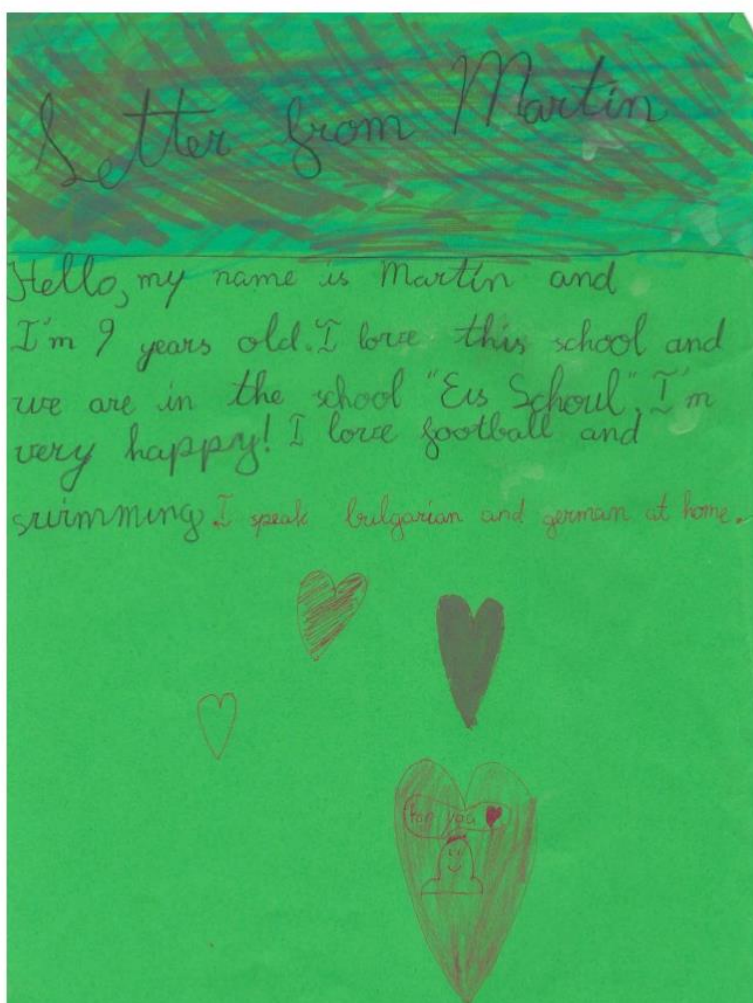 Letter from Martin
Hello, my name is Martin and
I'm 9 years old. I love this school and
we are in the school "Eis Schoul". I'm
very happy! I love football and
swimming. I speak bulgarian and german at home.
for you